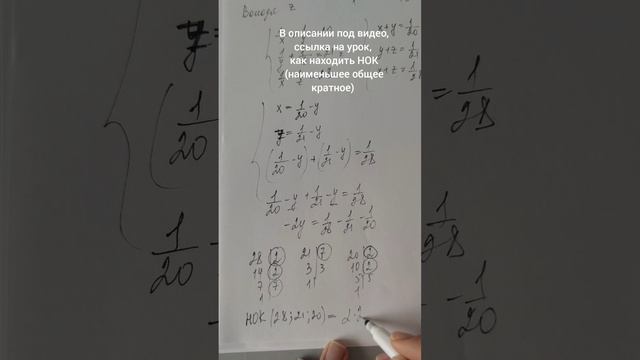 В описании под видео,
ссылка на урок,
как находить НОК
(наименьшее общее
кратное)
x+y=1/20
y+z=1/21
x+z=1/28
x=1/20-y
z=1/21-y
(1/20-y)+(1/21-y)=1/28
1/20-y+1/21-y=1/28
-2y=1/28-1/21-1/20
28|2 21|7 20|2
14|2 3|3 10|2
7|7 1 5|5
1 1
НОК(28;21;20)=2·2